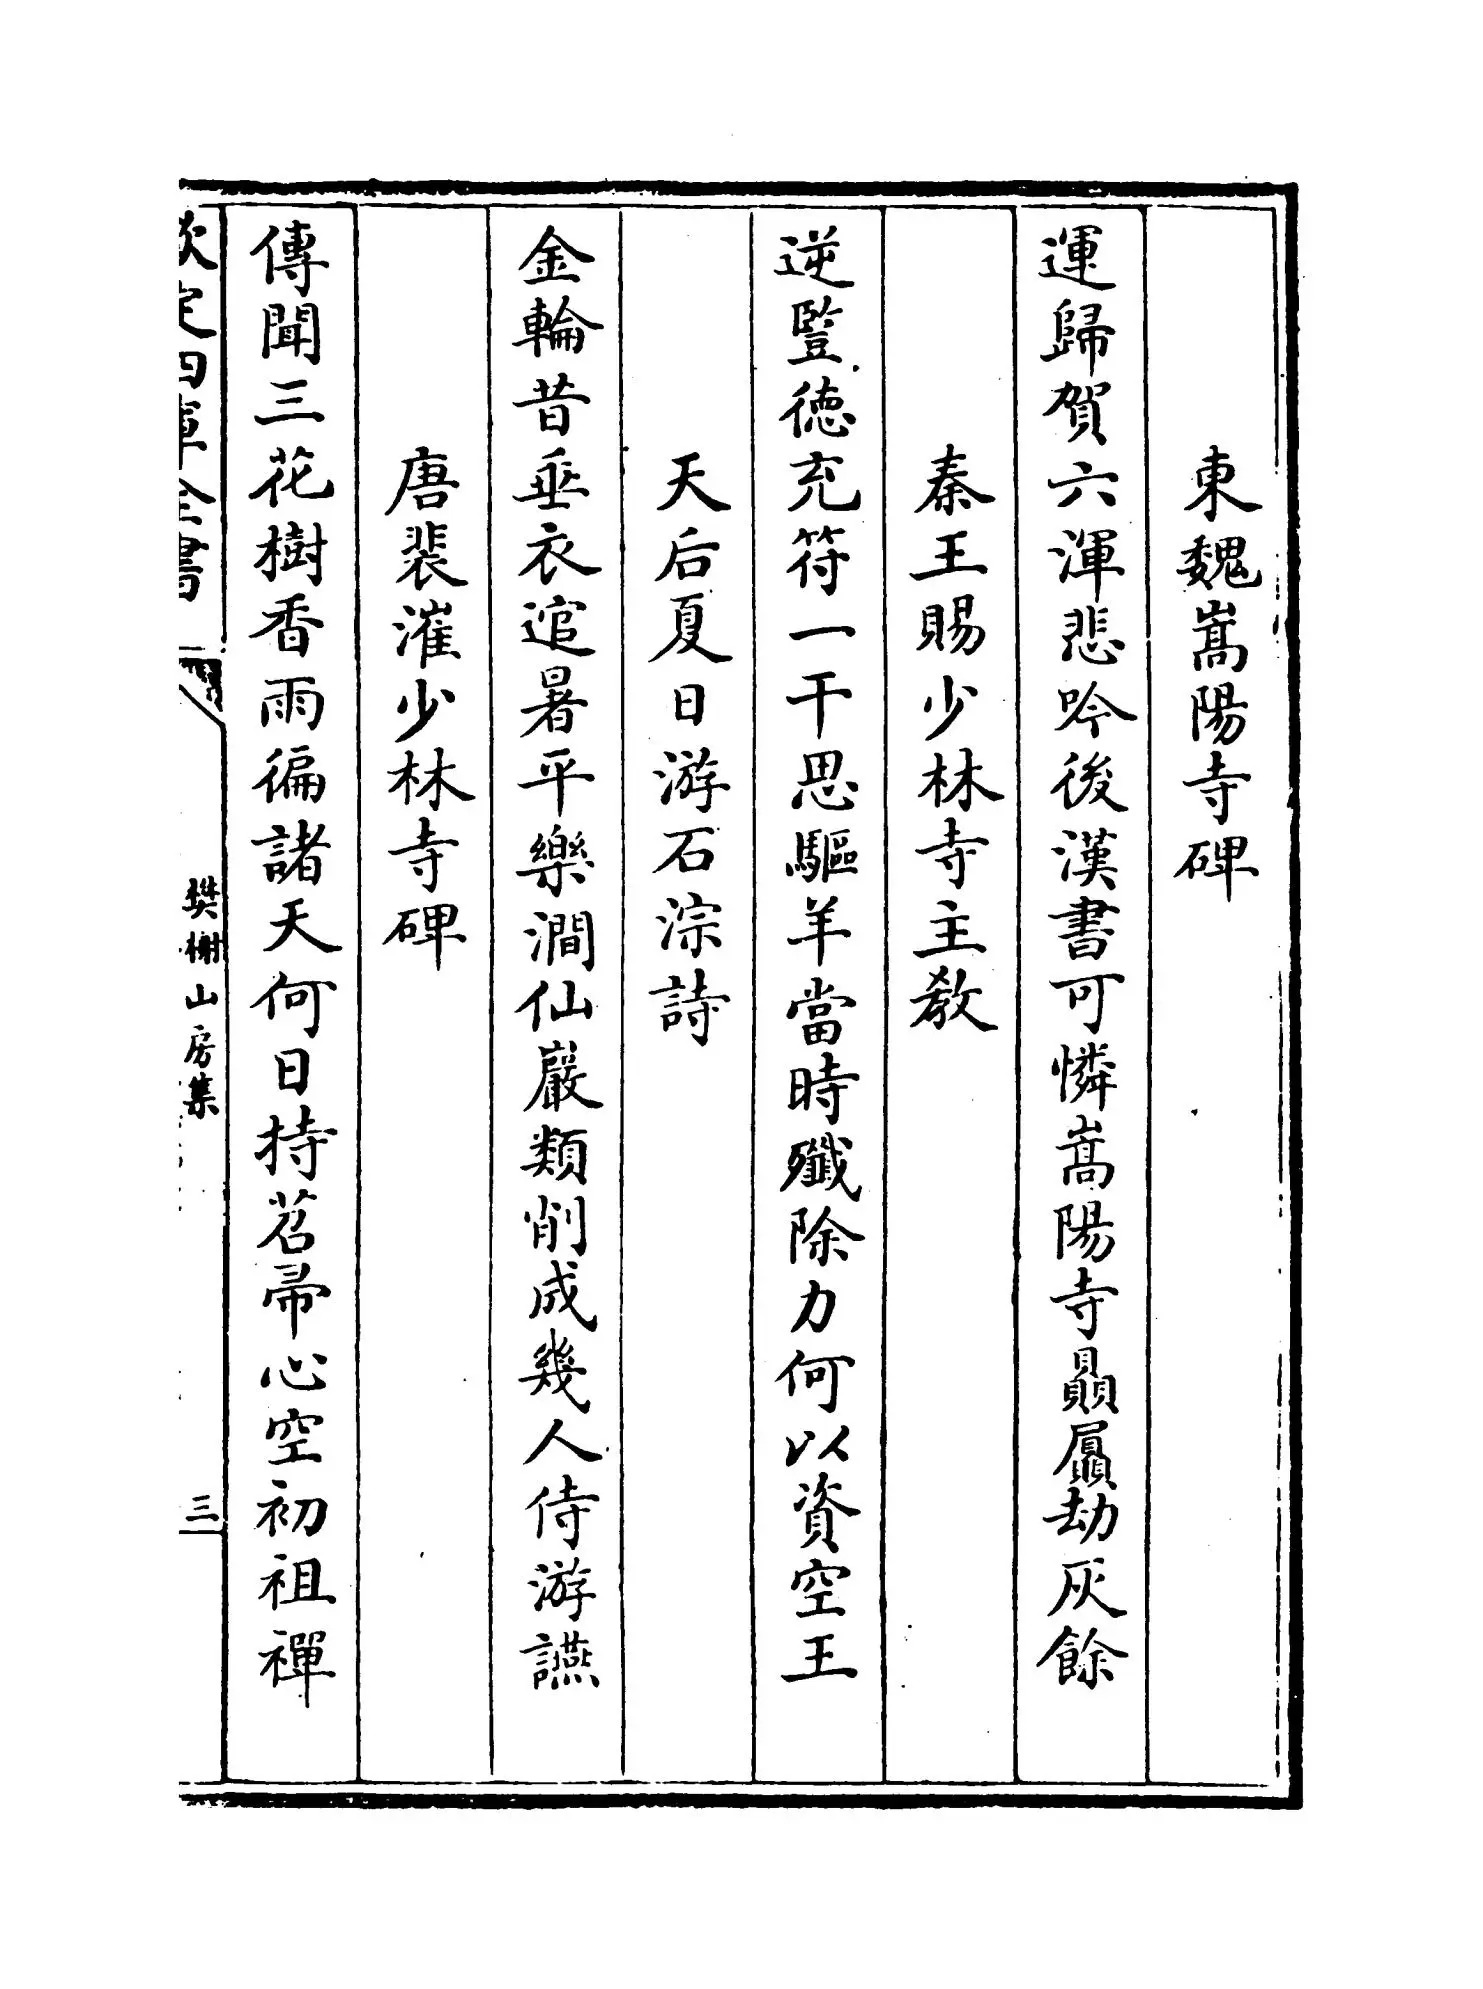 東魏嵩陽寺碑
運歸賀六渾悲吟後漢書可憐嵩陽寺贔屭劫灰餘
秦王賜少林寺主教
逆豎德充符一干思驅羊當時殲除力何以資空王
天后夏日游石淙詩
金輪昔垂衣逭暑平樂澗仙巖類削成幾人侍游讌
唐裴漼少林寺碑
傳聞三花樹香雨徧諸天何日持苕帚心空初祖禪
欽定四庫全書
樊榭山房集
三